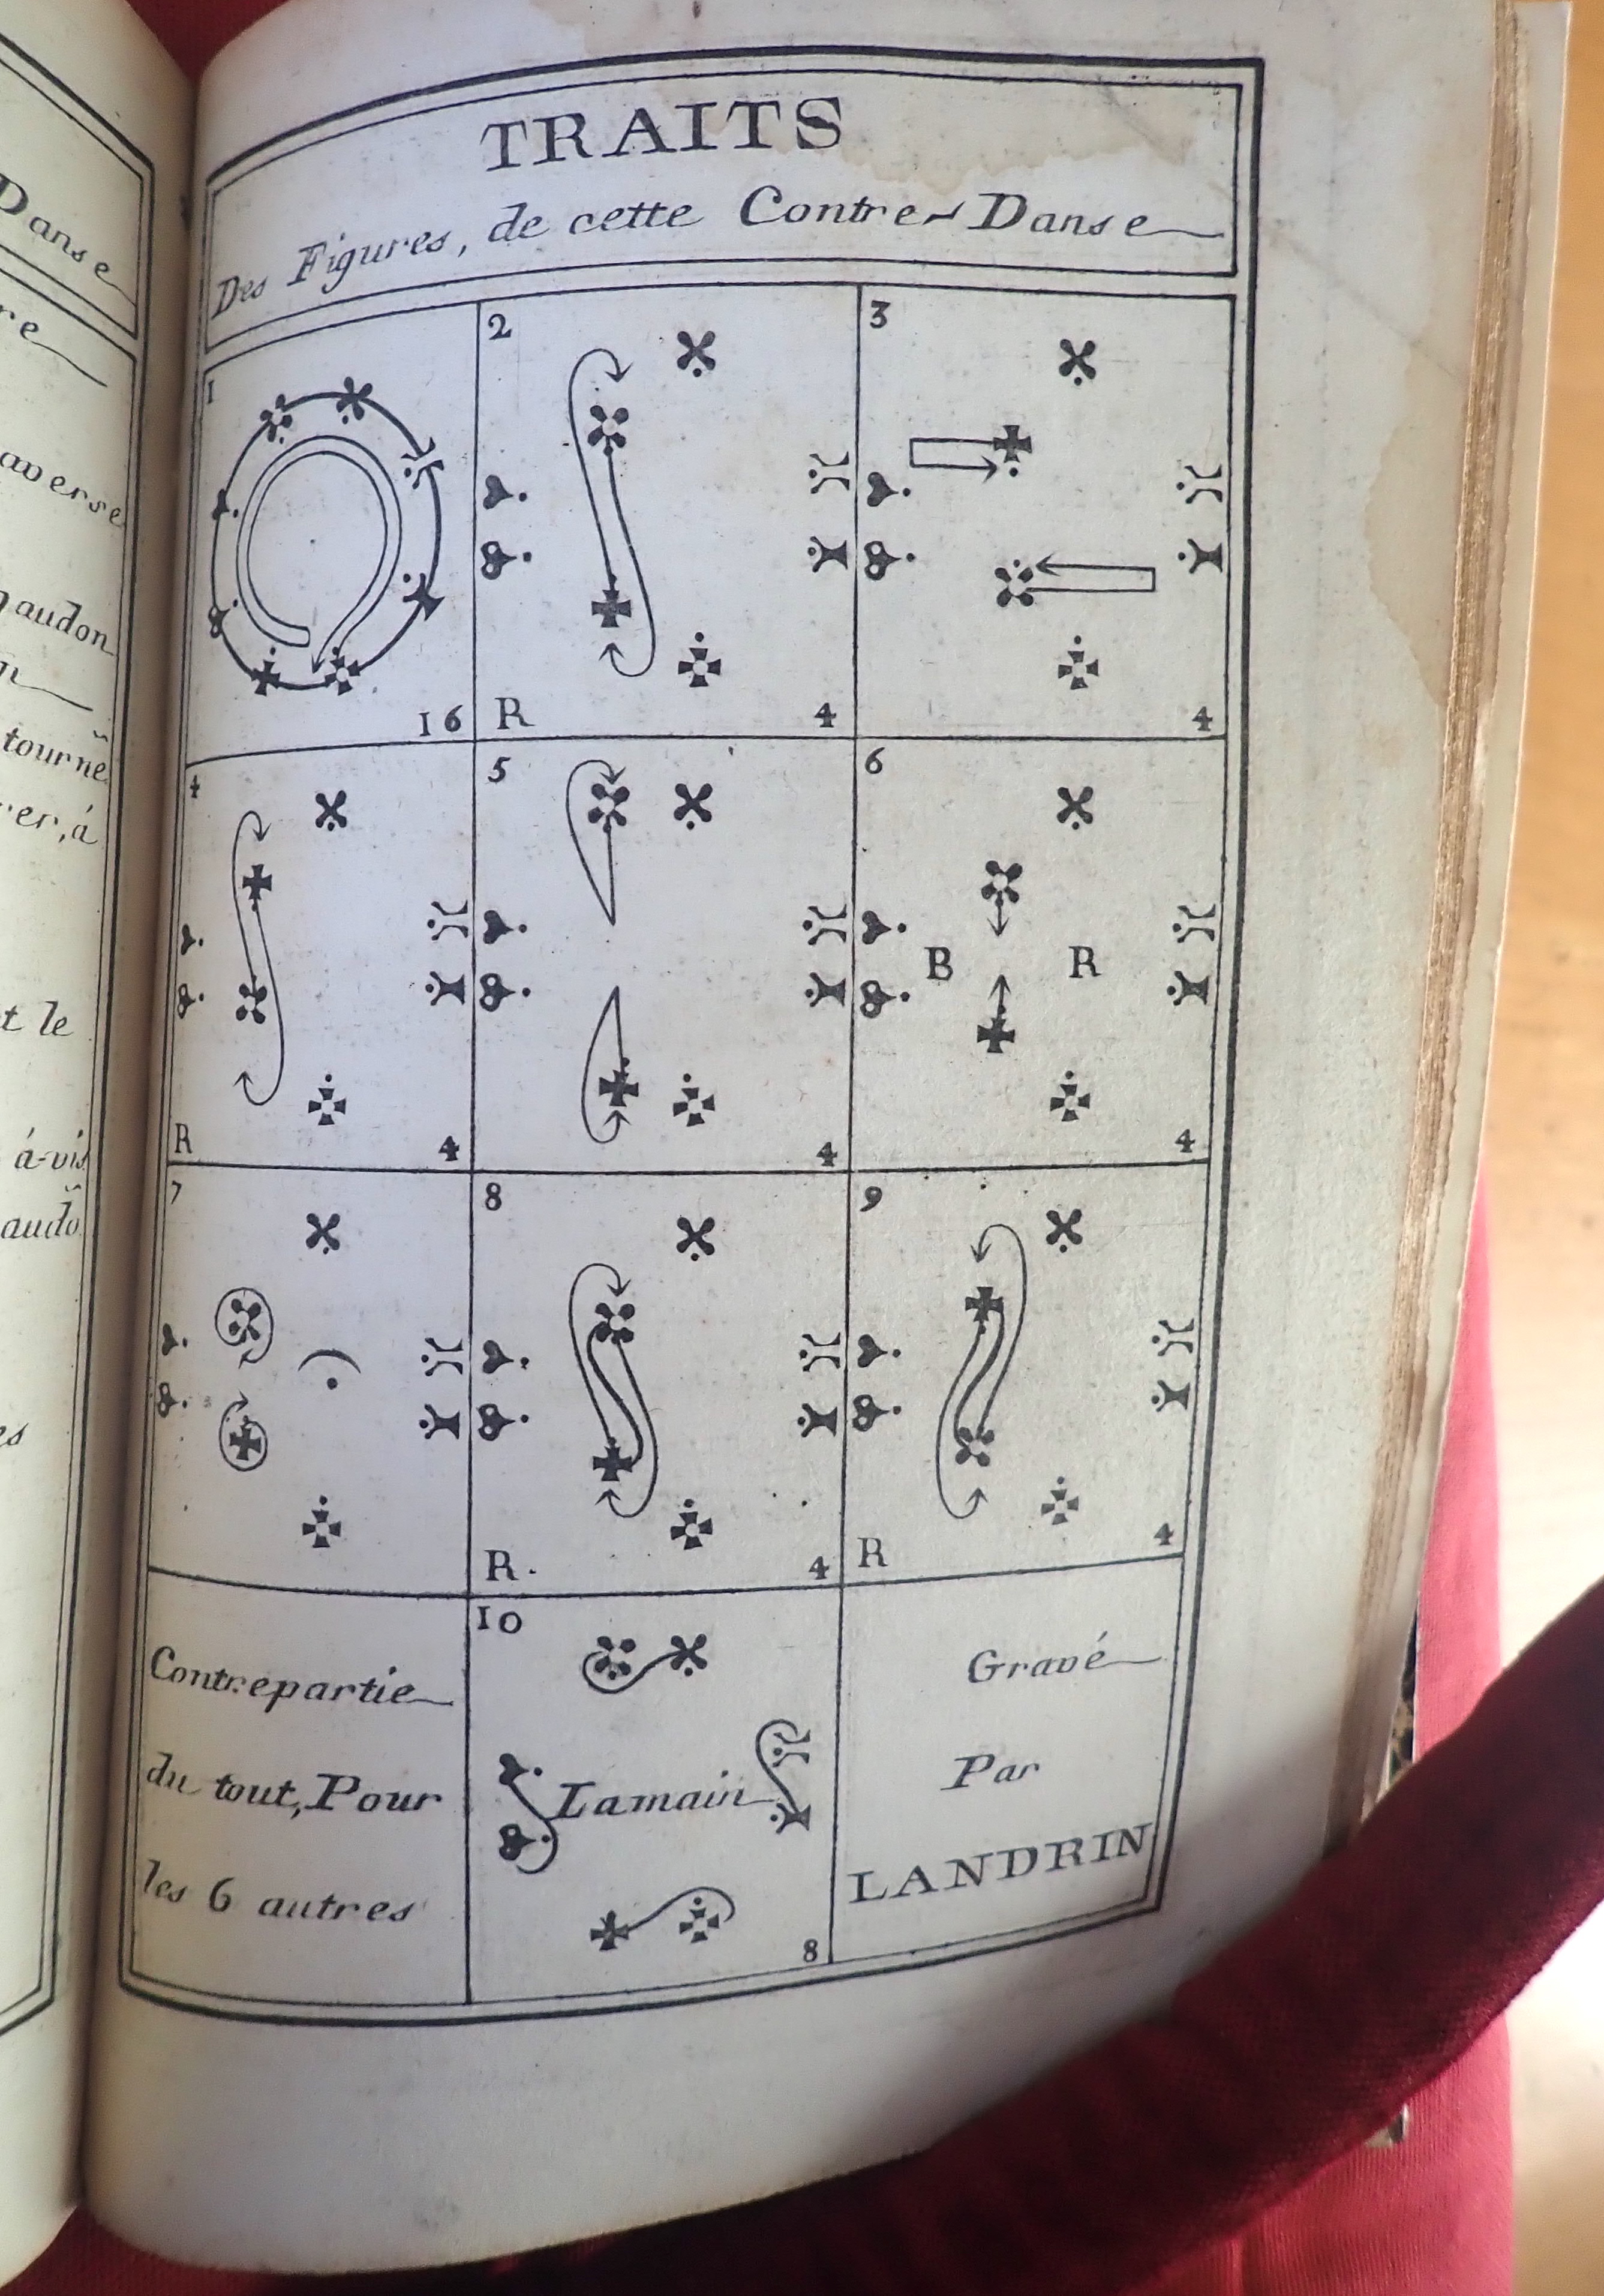 Danse
re
averse
audon
tourñe
er, á
t le
á-vis
TRAITS
Des Figures, de cette Contre-Danse
1
16
2
R
4
3
4
4
R
4
5
4
6
B R
4
7
8
R.
4
9
R
4
Contrepartie
du tout, Pour
les 6 autres
10
Lamain
8
Gravé
Par
LANDRIN